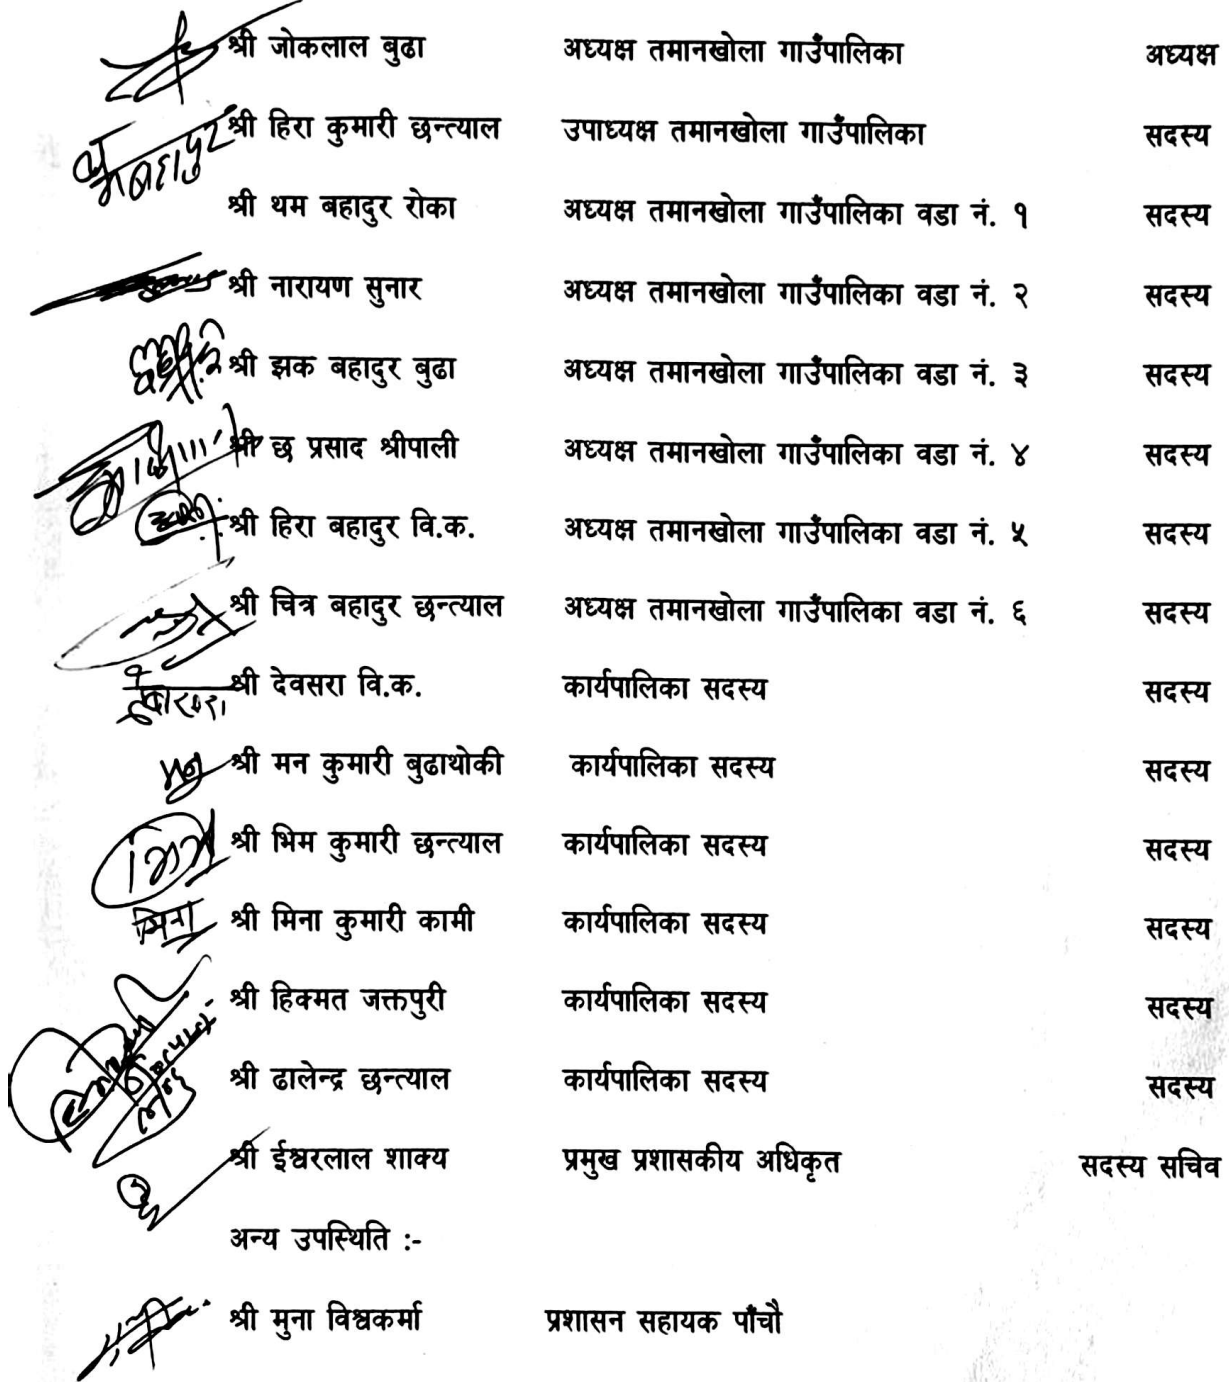 श्री जोकलाल बुढा अध्यक्ष तमानखोला गाउँपालिका अध्यक्ष
श्री हिरा कुमारी छन्त्याल उपाध्यक्ष तमानखोला गाउँपालिका सदस्य
श्री थम बहादुर रोका अध्यक्ष तमानखोला गाउँपालिका वडा नं. १ सदस्य
श्री नारायण सुनार अध्यक्ष तमानखोला गाउँपालिका वडा नं. २ सदस्य
श्री झक बहादुर बुढा अध्यक्ष तमानखोला गाउँपालिका वडा नं. ३ सदस्य
श्री छ प्रसाद श्रीपाली अध्यक्ष तमानखोला गाउँपालिका वडा नं. ४ सदस्य
श्री हिरा बहादुर वि.क. अध्यक्ष तमानखोला गाउँपालिका वडा नं. ५ सदस्य
श्री चित्र बहादुर छन्त्याल अध्यक्ष तमानखोला गाउँपालिका वडा नं. ६ सदस्य
श्री देवसरा वि.क. कार्यपालिका सदस्य सदस्य
श्री मन कुमारी बुढाथोकी कार्यपालिका सदस्य सदस्य
श्री भिम कुमारी छन्त्याल कार्यपालिका सदस्य सदस्य
मिना श्री मिना कुमारी कामी कार्यपालिका सदस्य सदस्य
श्री हिक्मत जक्तपुरी कार्यपालिका सदस्य सदस्य
श्री ढालेन्द्र छन्त्याल कार्यपालिका सदस्य सदस्य
श्री ईश्वरलाल शाक्य प्रमुख प्रशासकीय अधिकृत सदस्य सचिव
अन्य उपस्थिति :-
श्री मुना विश्वकर्मा प्रशासन सहायक पाँचौ